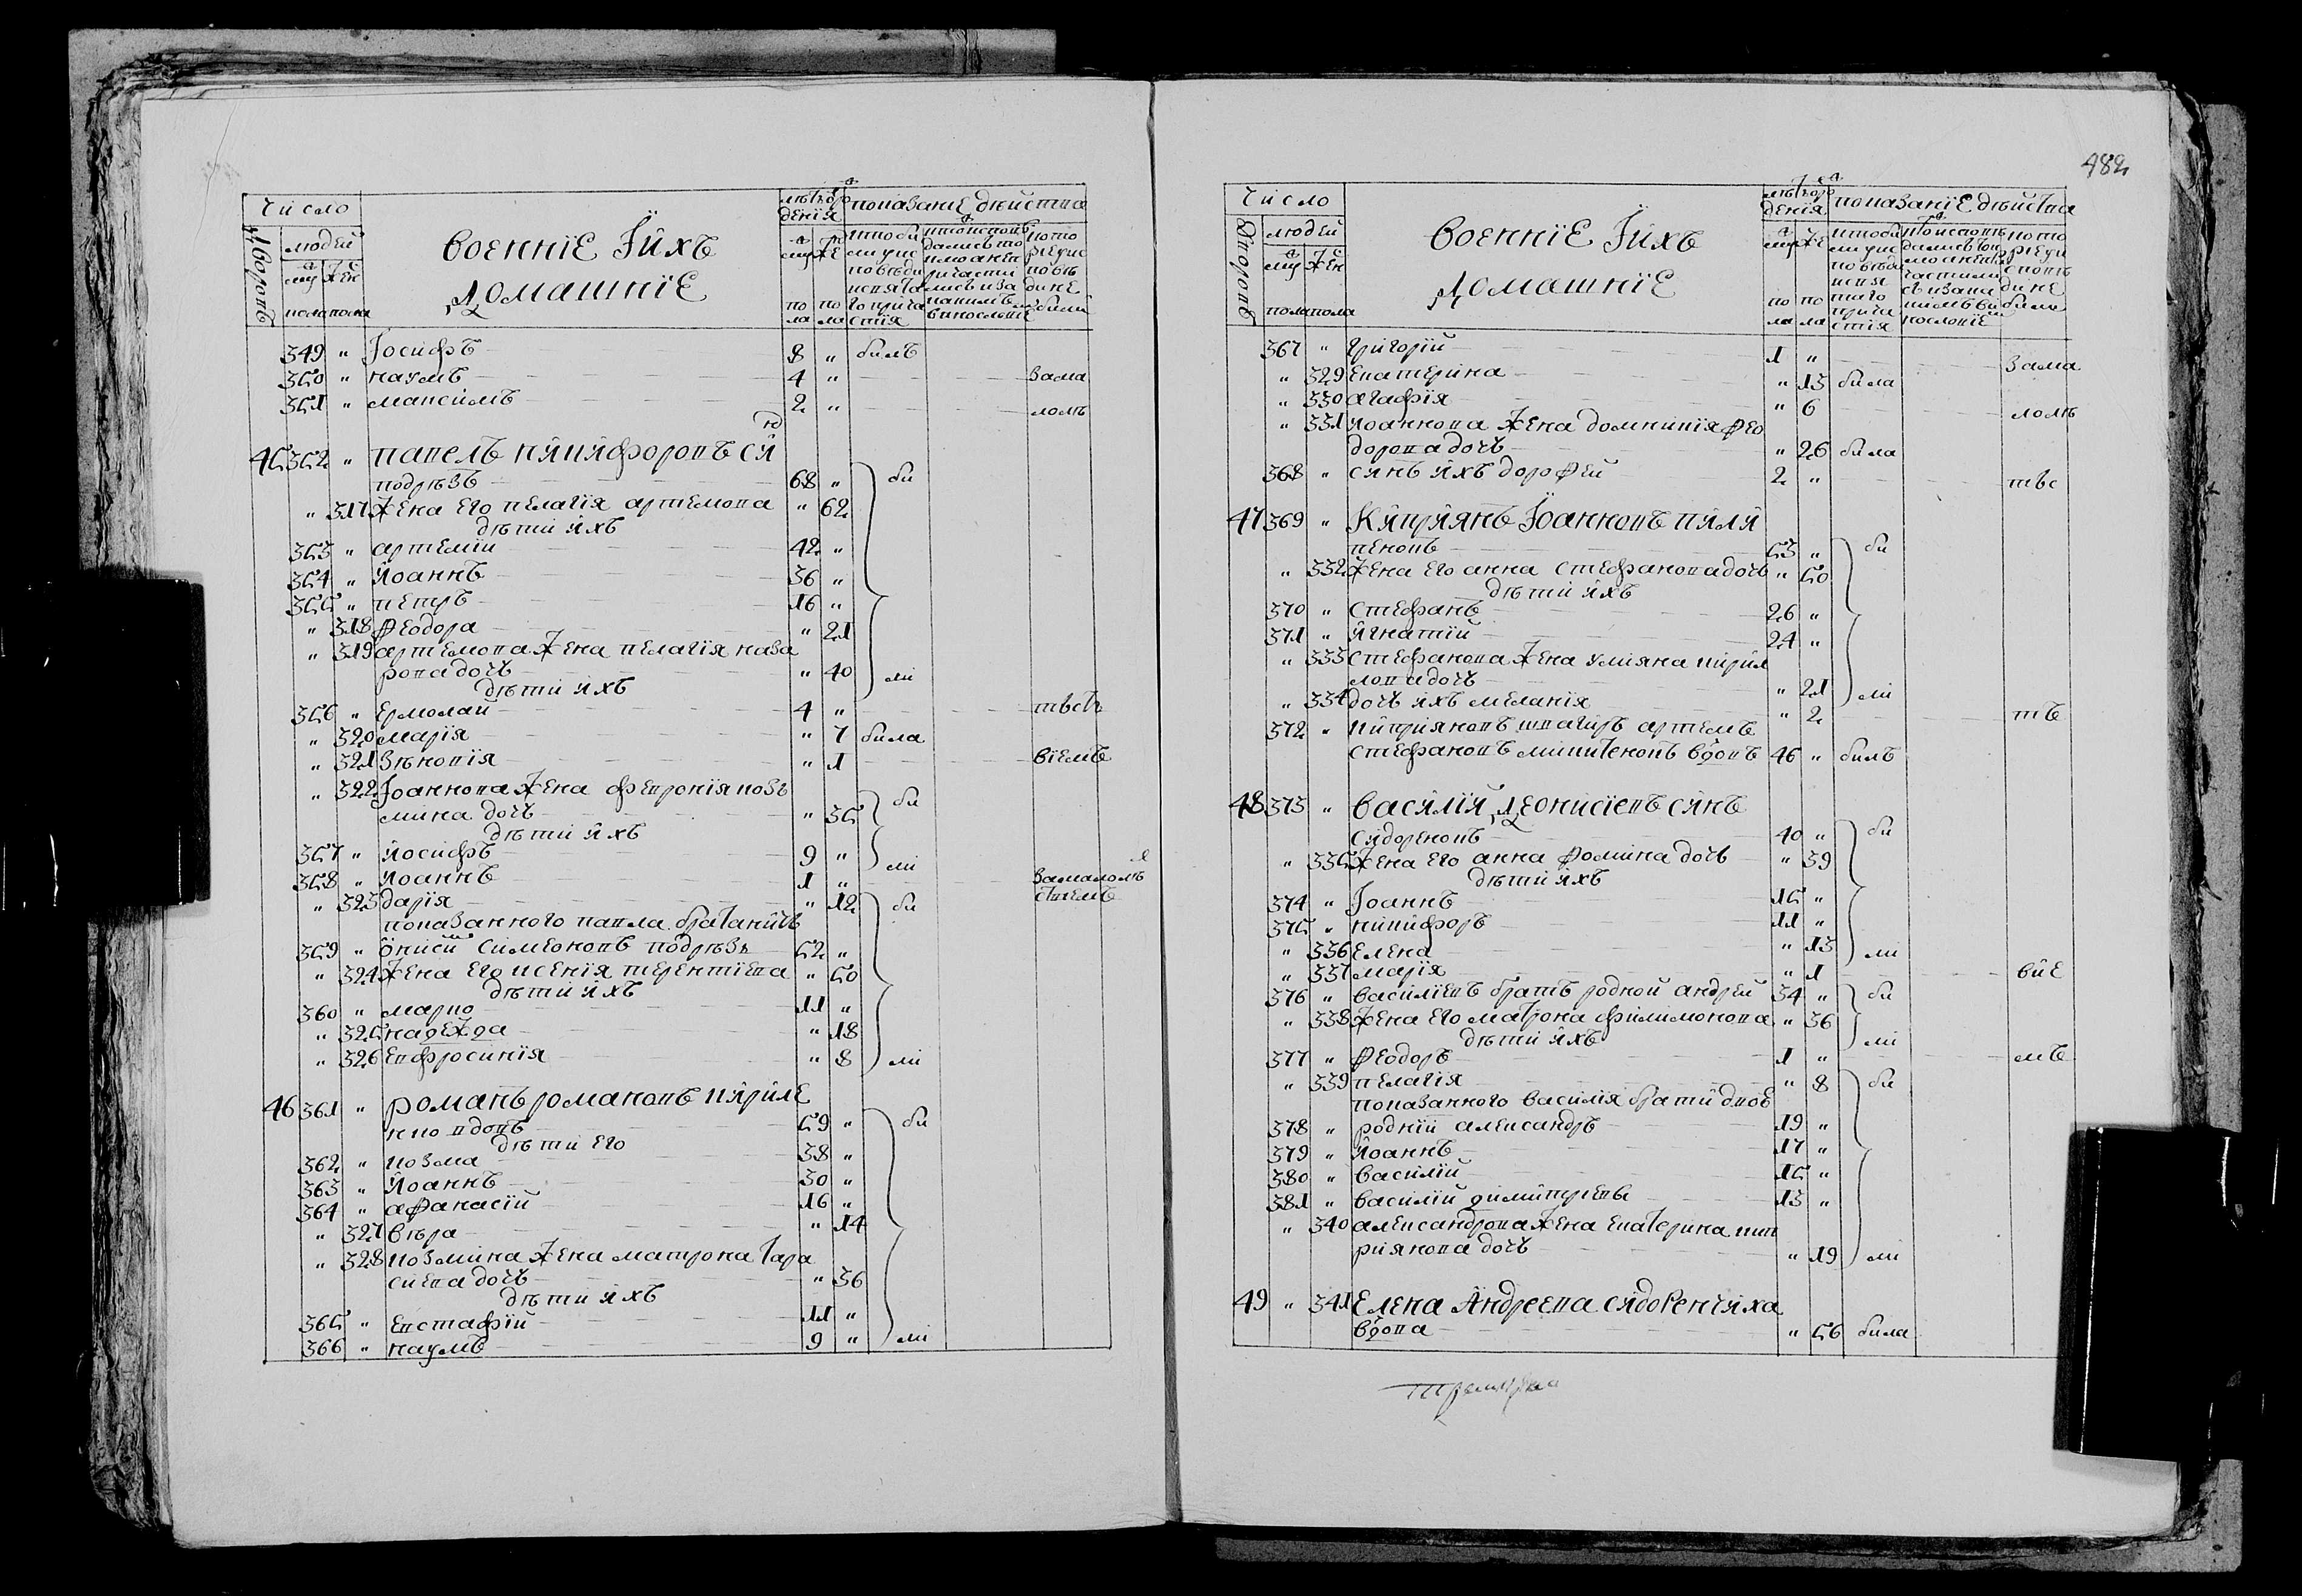 Число
людей
Дворовъ
муж
жен
пола пола
военнїе Їихъ
Домашнїе
лѣтъ рож
денїя
показанїе дѣйства
349 " Їосифъ 8 " билъ
350 " наумъ 4 " зама
351 " максимъ 2 " лолѣ
45 352 " павелъ никифоровъ сы
подрѣзъ 68 " би
" 317 жена его пелагїя артемова " 62
дѣти ихъ
353 " артемїй 42 "
354 " иоаннъ 36 "
355 " петръ 16 "
" 318 феодора " 21
" 319 артемова жена пелагїя наза
рова дочь " 40 ли
дѣти ихъ
356 " Ермолай 4 "
" 320 марїя " 7 била
" 321 Зѣновїя " 1 вїемъ
" 322 Їоаннова жена февронїя козь
мина дочь " 35 би
дѣти ихъ
357 " иосифъ 9 " ли
358 " иоаннъ 1 " замалолѣ
" 323 дарїя " 12 би
ствемъ
показанного павла братаничъ
359 " Онисїй симеоновъ подрѣзъ 52 "
" 324 жена его ксенїя терентїева " 50
дѣти ихъ
360 " марко 11 "
" 325 надежда " 18
" 326 Евфросинїя " 8 ли
46 361 " романъ романовъ кириле
нко вдовъ 59 " би
дѣти его
362 " козма 38 "
363 " иоаннъ 30 "
364 " афанасїй 16 "
" 327 вѣра " 14
" 328 козмина жена матрона тара
сиева дочь " 36
дѣти ихъ
365 " Евстафїй 11 "
366 " наумъ 9 " ли
482
Число
людей
Дворовъ
муж
жен
пола пола
военнїе Їихъ
Домашнїе
лѣтъ рож
денїя
показанїе дѣйства
367 " григорїй 1 " зама
" 329 Екатерина " 13 била
" 330 агафїя " 6 лолѣ
" 331 иоаннова жена домникїя фео
дорова дочь " 26 била
368 " синъ ихъ дорофей 2 " твс
47 369 " Киприянъ Їоанновъ пили
пенковъ 53 " би
" 332 жена его анна стефанова дочь " 50
дѣти ихъ
370 " стефанъ 26 "
371 " игнатїй 24 "
" 333 стефанова жена улияна кирил
лова дочь " 21
" 334 дочь ихъ меланїя " 2 ли
тъ
372 " киприяновъ швагиръ артемъ
стефановъ микитенковъ вдовъ 46 " билъ
48 373 " василїй Деонисїевъ синъ
сидоренковъ 40 " би
" 335 жена его анна фомина дочь " 39
дѣти ихъ
374 " Їоаннъ 15 "
375 " никифоръ 11 "
" 336 Елена " 13 ли
" 337 марїя " 1 вїе
376 " василїевъ братъ родной андрей 34 " би
" 338 жена его матрона филимонова " 36
дѣти ихъ ли
377 " феодоръ 1 " мъ
" 339 пелагїя " 8 би
показанного василїя брати двое
378 " роднїи александръ 19 "
379 " иоаннъ 17 "
380 " василїй 15 "
381 " василїй димитриевъ 13 "
" 340 александрова жена Екатерина кип
риянова дочь " 19 ли
49 " 341 Елена Андреева сидоренчиха
вдова " 56 била